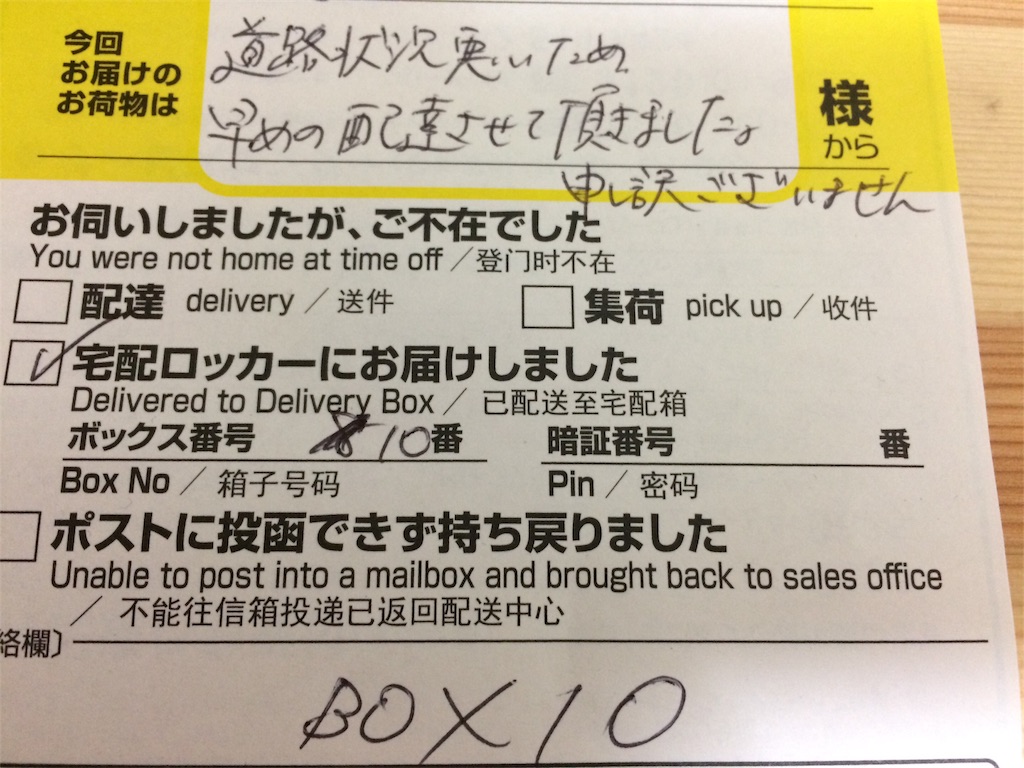 今回
お届けの
お荷物は
道路状況悪いため
早めの配達させて頂きました。
申し訳ございません
様
から
お伺いしましたが、ご不在でした
You were not home at time off／登门时不在
配達 delivery／送件
集荷 pick up／收件
宅配ロッカーにお届けしました
Delivered to Delivery Box／已配送至宅配箱
ボックス番号 10番
暗証番号 番
Box No／箱子号码
Pin／密码
ポストに投函できず持ち戻りました
Unable to post into a mailbox and brought back to sales office
／不能往信箱投递已返回配送中心
絡欄〕
BOX 10